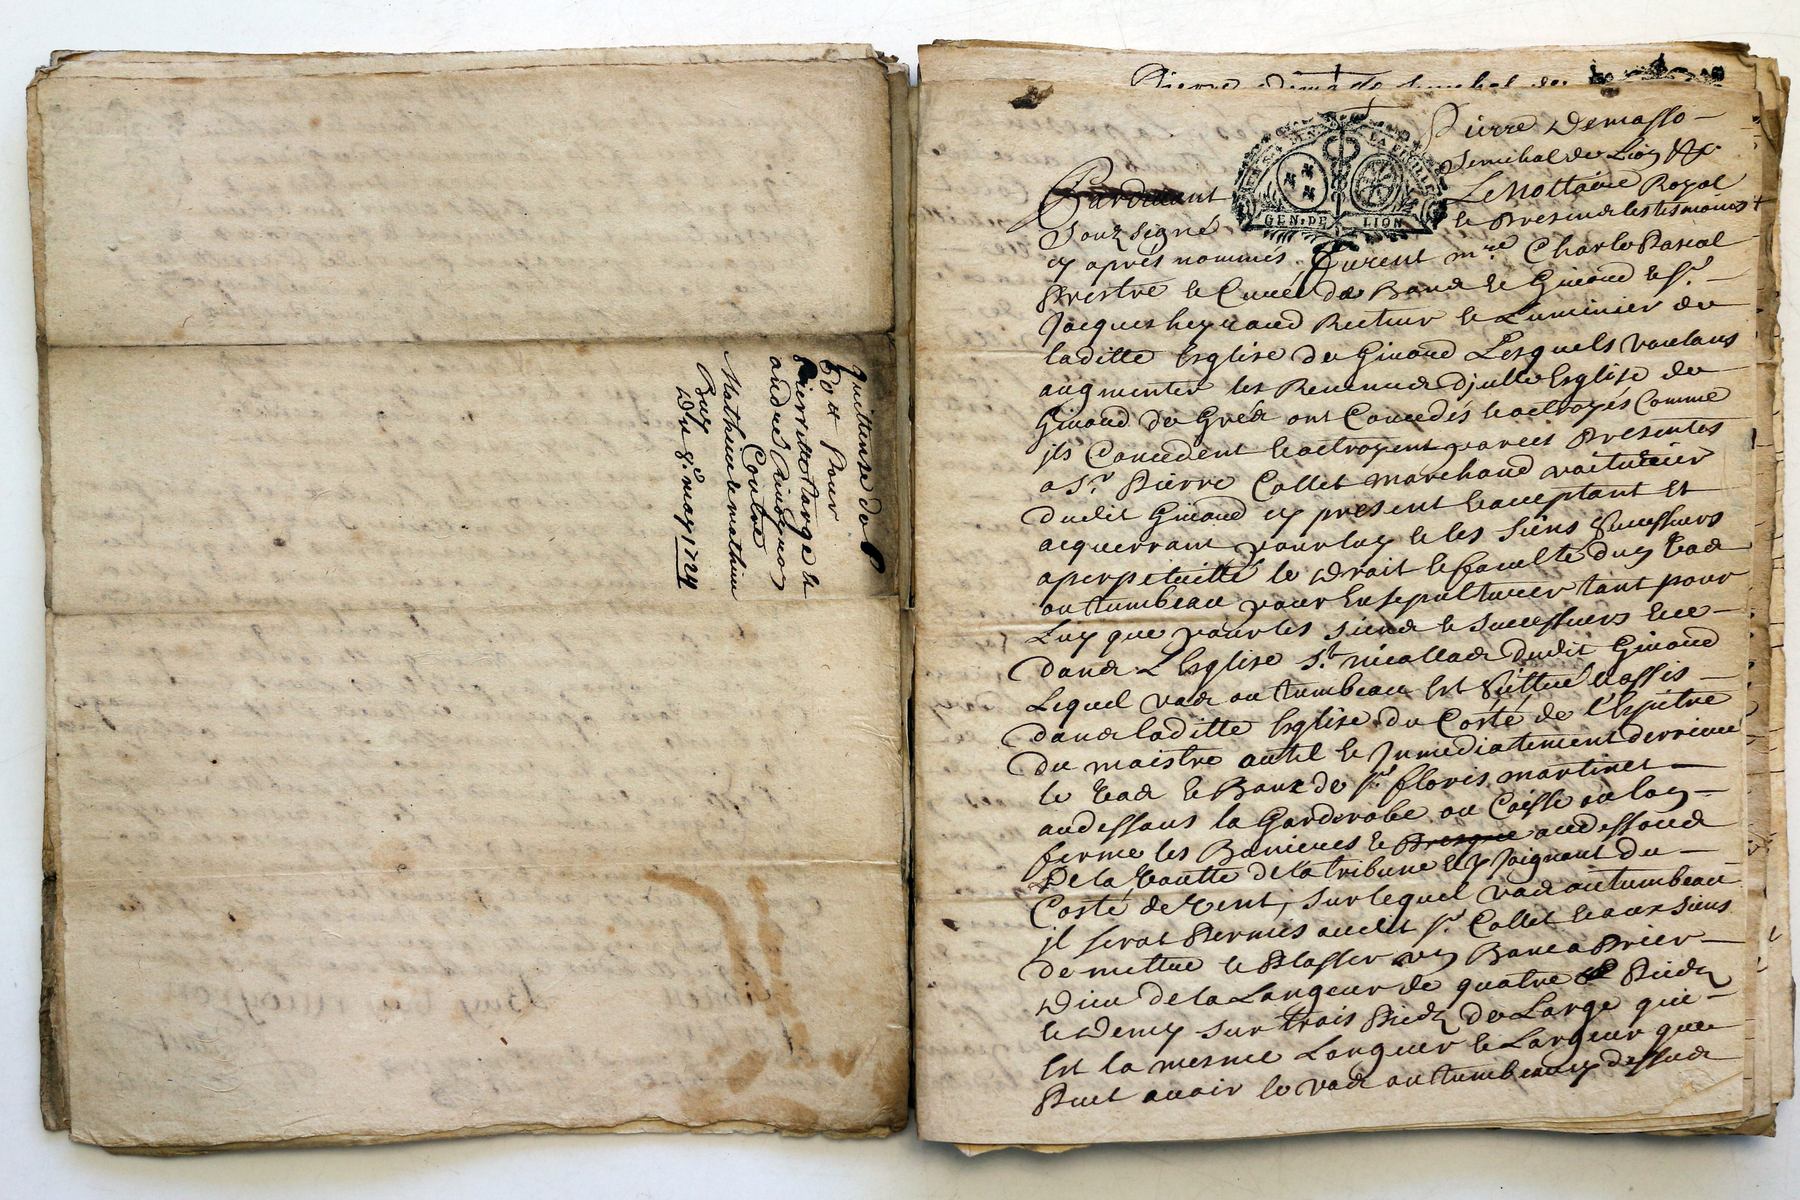 Quittense de
60 tt pour
pierre
andré
Contre
Mathieu de mathieu
Du 8e may 1724
Pierre
GEN. DE LION
Pierre Demasso
Senechal de Lion &c
Pardevant Le Nottaire Royal
Soubsigné & Presend les tesmoins
cy après nommés furent mre Charle Pascal
Prestre & Curé de & Givord & Sr
Jacques Recteur & Luminier de
laditte Esglise de Givord Lesquels voulans
augmenter les Revenud Esglise de
Givord de Gréd ont Concedés & octroyés Comme
jls Concedent & octroyent par ces Presentes
a Sr Pierre Collet marchand voiturier
dudit Givord cy present & acceptant et
acquerrant pour luy & les siens Successeurs
a perpetuitté le Droit & faculté duy
ou tumbeau pour Ensepulturer tant pour
Luy que pour les siend & Successeurs
dand L'Esglise St nicollad dudit Givord
Lequel vad ou tumbeau Est Sittué & assis
dand laditte Esglise du Costé de l'Epitre
du maistre autel & Jmmediatement derriere
le & Banc de Sr floris martinet
au dessous la Garderobe ou Caisse ou lon
ferme les Banieres & Presque au dessoud
De la voutte de la tribune & Joignant du
Costé de vent, sur lequel vad ou tumbeau
jl serat Permis audit Sr Collet & aux siens
de mettre & Plasser un Banc a Prier
Dieu de la Longeur de quatre Piedz
& Demy sur trois Piedz de Large qui
Est la mesme Longueur & Largeur que
Peut avoir le vad ou tumbeau cy dessud